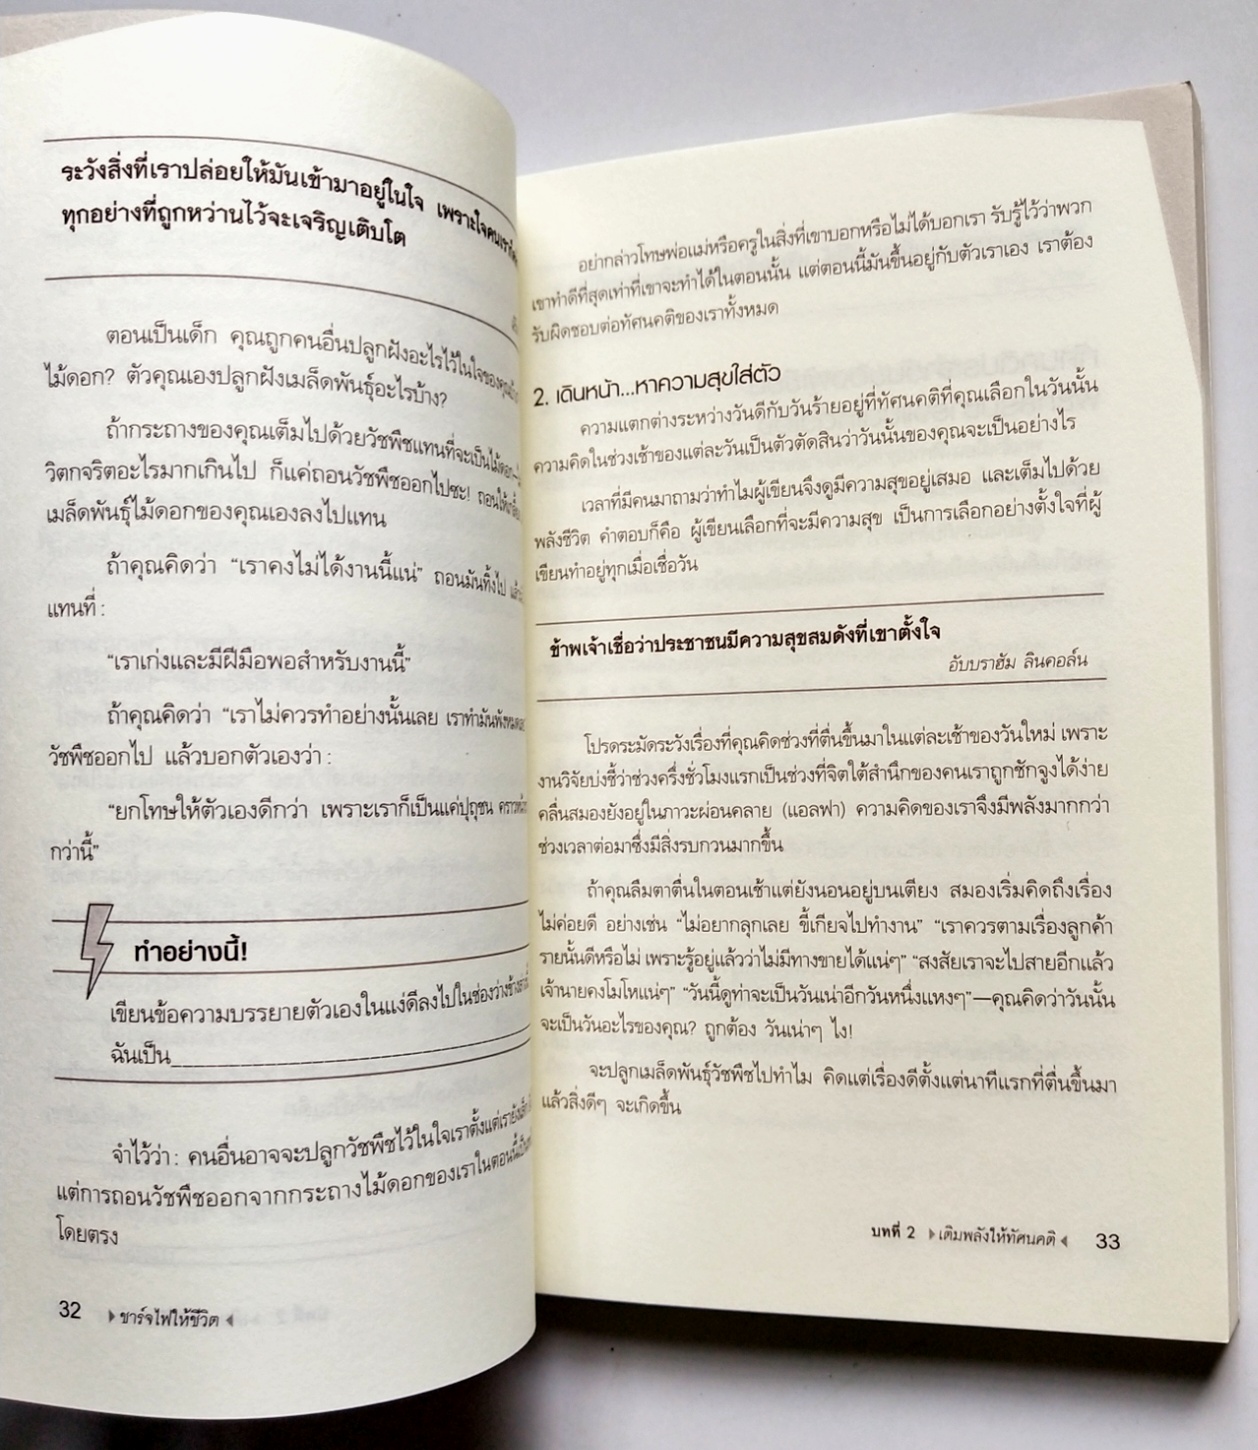 ระวังสิ่งที่เราปล่อยให้มันเข้ามาอยู่ในใจ เพราะใจคนเรา
ทุกอย่างที่ถูกหว่านไว้จะเจริญเติบโต
ตอนเป็นเด็ก คุณถูกคนอื่นปลูกฝังอะไรไว้ในใจของคุณ
ไม้ดอก? ตัวคุณเองปลูกฝังเมล็ดพันธุ์อะไรบ้าง?
ถ้ากระถางของคุณเต็มไปด้วยวัชพืชแทนที่จะเป็นไม้ดอก—
วิตกจริตอะไรมากเกินไป ก็แค่ถอนวัชพืชออกไปซะ!
เมล็ดพันธุ์ไม้ดอกของคุณเองลงไปแทน
ถ้าคุณคิดว่า “เราคงไม่ได้งานนี้แน่” ถอนมันทิ้งไป
แทนที่:
“เราเก่งและมีฝีมือพอสำหรับงานนี้”
ถ้าคุณคิดว่า “เราไม่ควรทำอย่างนั้นเลย เราทำมันพังหมด
วัชพืชออกไป แล้วบอกตัวเองว่า:
“ยกโทษให้ตัวเองดีกว่า เพราะเราก็เป็นแค่ปุถุชน
กว่านี้”
ทำอย่างนี้!
เขียนข้อความบรรยายตัวเองในแง่ดีลงไปในช่องว่างข้างล่าง
ฉันเป็น
จำไว้ว่า: คนอื่นอาจจะปลูกวัชพืชไว้ในใจเราตั้งแต่เรายังเล็ก
แต่การถอนวัชพืชออกจากกระถางไม้ดอกของเราในตอนนี้
โดยตรง
32 ชาร์จไฟให้ชีวิต
อย่ากล่าวโทษพ่อแม่หรือครูในสิ่งที่เขาบอกหรือไม่ได้บอกเรา รับรู้ไว้ว่าพวก
เขาทำดีที่สุดเท่าที่เขาจะทำได้ในตอนนั้น แต่ตอนนี้มันขึ้นอยู่กับตัวเราเอง เราต้อง
รับผิดชอบต่อทัศนคติของเราทั้งหมด
2. เดินหน้า...หาความสุขใส่ตัว
ความแตกต่างระหว่างวันดีกับวันร้ายอยู่ที่ทัศนคติที่คุณเลือกในวันนั้น
ความคิดในช่วงเช้าของแต่ละวันเป็นตัวตัดสินว่าวันนั้นของคุณจะเป็นอย่างไร
เวลาที่มีคนมาถามว่าทำไมผู้เขียนจึงดูมีความสุขอยู่เสมอ และเต็มไปด้วย
พลังชีวิต คำตอบก็คือ ผู้เขียนเลือกที่จะมีความสุข เป็นการเลือกอย่างตั้งใจที่ผู้
เขียนทำอยู่ทุกเมื่อเชื่อวัน
ข้าพเจ้าเชื่อว่าประชาชนมีความสุขสมดังที่เขาตั้งใจ
อับบราฮัม ลินคอล์น
โปรดระมัดระวังเรื่องที่คุณคิดช่วงที่ตื่นขึ้นมาในแต่ละเช้าของวันใหม่ เพราะ
งานวิจัยบ่งชี้ว่าช่วงครึ่งชั่วโมงแรกเป็นช่วงที่จิตใต้สำนึกของคนเราถูกชักจูงได้ง่าย
คลื่นสมองยังอยู่ในภาวะผ่อนคลาย (แอลฟา) ความคิดของเราจึงมีพลังมากกว่า
ช่วงเวลาต่อมาซึ่งมีสิ่งรบกวนมากขึ้น
ถ้าคุณลืมตาตื่นในตอนเช้าแต่ยังนอนอยู่บนเตียง สมองเริ่มคิดถึงเรื่อง
ไม่ค่อยดี อย่างเช่น “ไม่อยากลุกเลย ขี้เกียจไปทำงาน” “เราควรตามเรื่องลูกค้า
รายนั้นดีหรือไม่ เพราะรู้อยู่แล้วว่าไม่มีทางขายได้แน่ๆ” “สงสัยเราจะไปสายอีกแล้ว
เจ้านายคงโมโหแน่ๆ” “วันนี้ดูท่าจะเป็นวันเน่าอีกวันหนึ่งแหงๆ”—คุณคิดว่าวันนั้น
จะเป็นวันอะไรของคุณ? ถูกต้อง วันเน่าๆ ไง!
จะปลูกเมล็ดพันธุ์วัชพืชไปทำไม คิดแต่เรื่องดีตั้งแต่นาทีแรกที่ตื่นขึ้นมา
แล้วสิ่งดีๆ จะเกิดขึ้น
บทที่ 2 เติมพลังให้ทัศนคติ 33